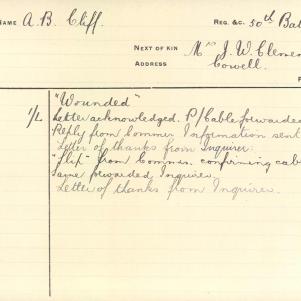 NAME A. B. Cliff.
REG. &C. 50th Bat
NEXT OF KIN Mrs J. W. Clemen
ADDRESS Cowell.
"Wounded"
1/L Letter acknowledged. P/Cable forwarded
Reply from Commr. Information sent
Letter of thanks from Inquirer.
"Slip" from Commrs. confirming cab
Same forwarded Inquirer.
Letter of thanks from Inquirer.